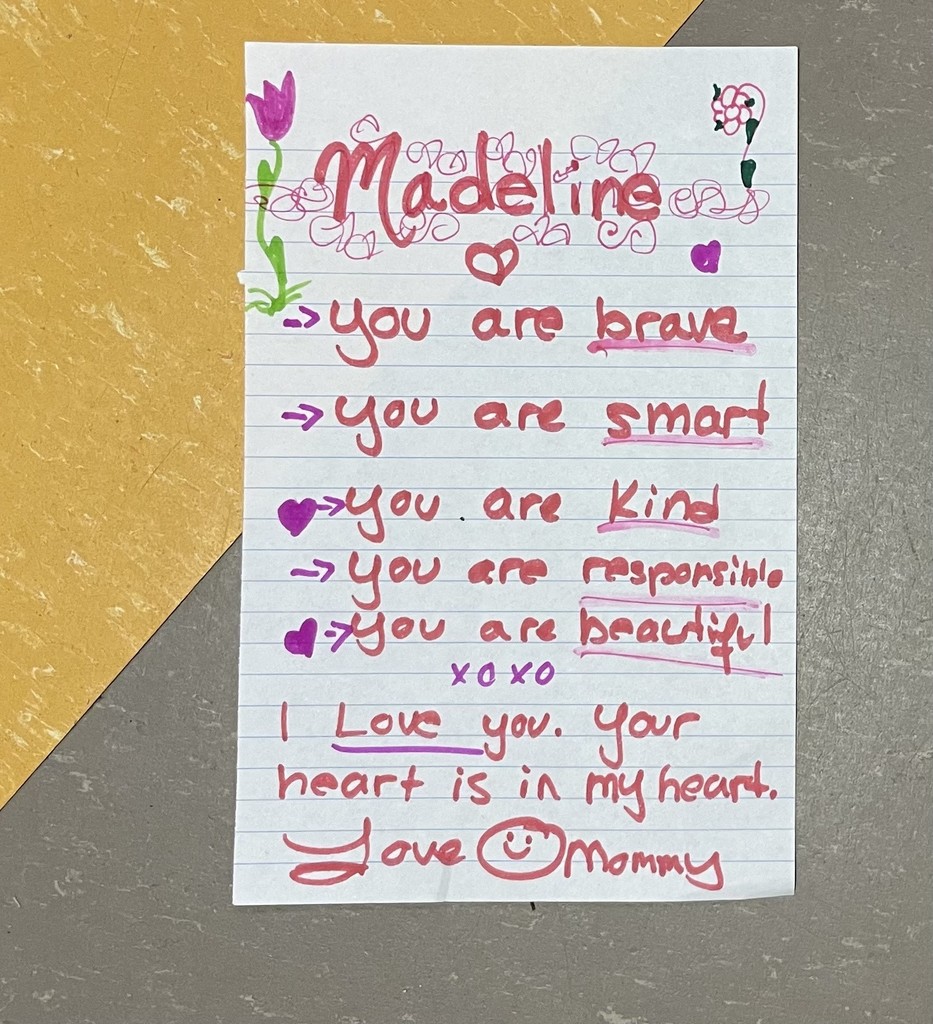 Madeline
→ you are brave
→ you are smart
→ you are Kind
→ you are responsible
→ you are beautiful
xoxo
I Love you. Your
heart is in my heart.
Love Mommy